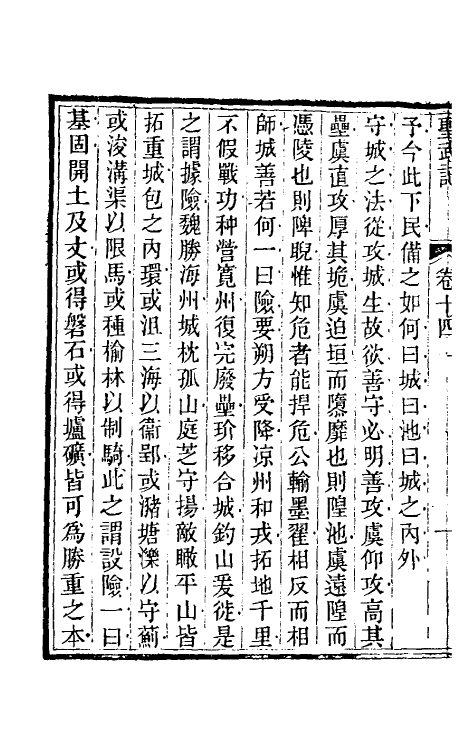 聖武記
卷十四
一
予今此下民備之如何曰城曰池曰城之內外
守城之法從攻城生故欲善守必明善攻虞仰攻高其
壘虞直攻厚其垝虞迫垣而隳靡也則隍池虞遠隍而
憑陵也則陴睨惟知危者能捍危公輸墨翟相反而相
師城善若何一曰險要朔方受降凉州和戎拓地千里
不假戰功种營寬州復完廢壘玠移合城釣山爰徙是
之謂據險魏勝海州城枕孤山庭芝守揚敵瞰平山皆
拓重城包之內環或沮三海以衞郢或瀦塘濼以守薊
或浚溝渠以限馬或種榆林以制騎此之謂設險一曰
基固開土及丈或得磐石或得壚礦皆可爲勝重之本